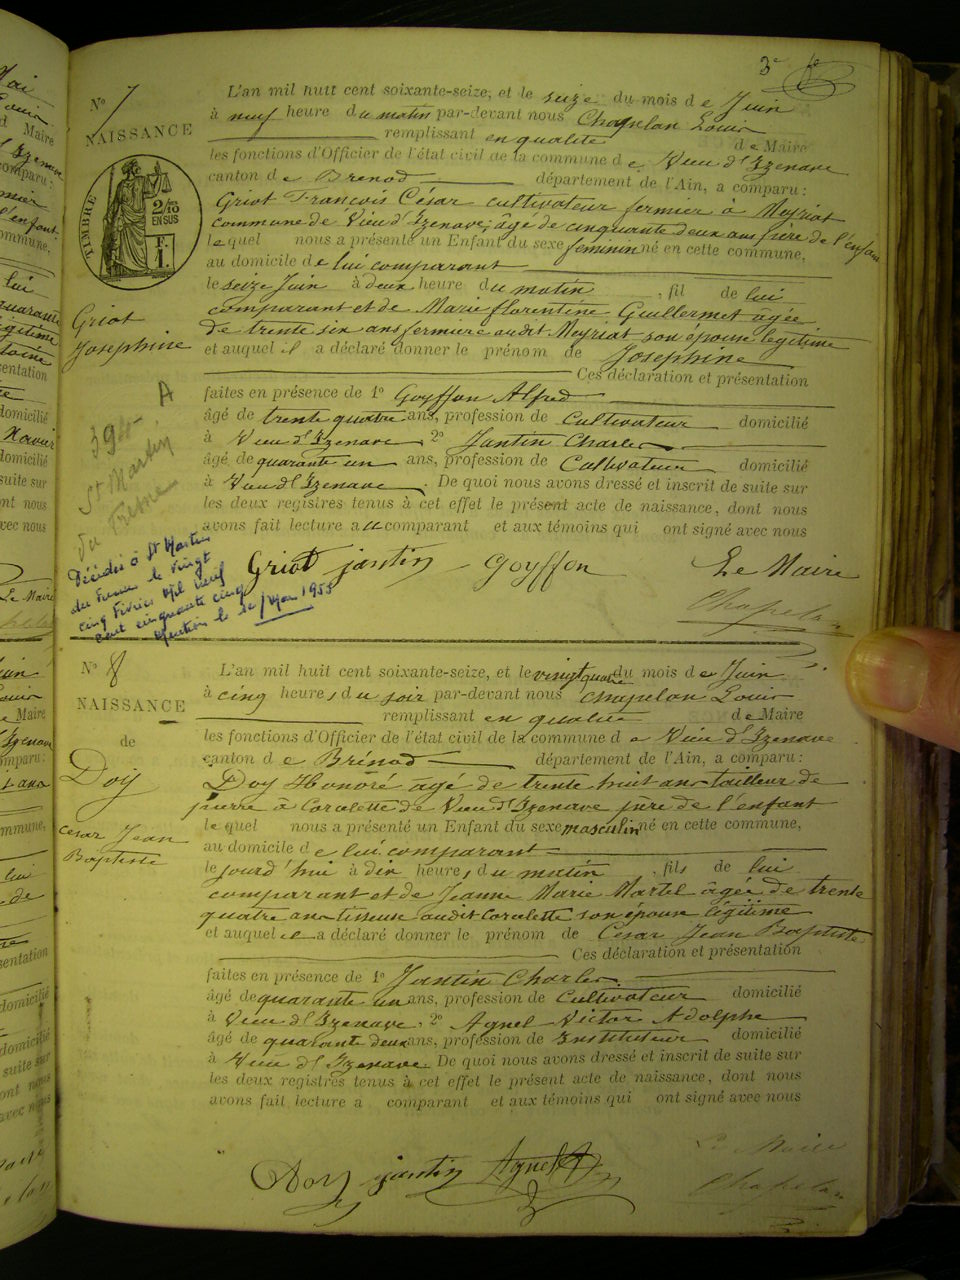 3e
No 7
NAISSANCE
TIMBRE
2/10 EN SUS
F. 1.
Griot
Josephine
A
394
St Martin
du Fresne
Décédée à St Martin
du Fresne le vingt
cinq Février Mil neuf
cent cinquante cinq
Mention le 1er Mars 1955
L'an mil huit cent soixante-seize, et le seize du mois de Juin
à neuf heure du matin par-devant nous Chapelan Louis
remplissant en qualité de Maire
les fonctions d'Officier de l'état civil de la commune de Vieu d'Izenave
canton de Brenod département de l'Ain, a comparu :
Griot François César cultivateur fermier à Meyriat
commune de Vieu d'Izenave, âgé de cinquante deux ans père de l'enfant
lequel nous a présenté un Enfant du sexe féminin né en cette commune,
au domicile de lui comparant
le seize Juin à deux heure du matin , fil de lui
comparant et de Marie florentine Guillermet agée
de trente six ans fermière audit Meyriat son épouse légitime
et auquel il a déclaré donner le prénom de Josephine
Ces déclaration et présentation
faites en présence de 1o Goyffon Alfred
âgé de trente quatre ans, profession de Cultivateur domicilié
à Vieu d'Izenave 2o Jantin Charles
âgé de quarante un ans, profession de Cultivateur domicilié
à Vieu d'Izenave . De quoi nous avons dressé et inscrit de suite sur
les deux registres tenus à cet effet le présent acte de naissance, dont nous
avons fait lecture au comparant et aux témoins qui ont signé avec nous
Griot jantin Goyffon Le Maire
Chapelan
No 8
NAISSANCE
de
Doy
César Jean
Baptiste
L'an mil huit cent soixante-seize, et le vingt quatre du mois de Juin
à cinq heures du soir par-devant nous Chapelan Louis
remplissant en qualité de Maire
les fonctions d'Officier de l'état civil de la commune de Vieu d'Izenave
canton de Brénod département de l'Ain, a comparu :
Doy Honoré âgé de trente huit ans tailleur de
pierre à Corolette de Vieu d'Izenave père de l'enfant
lequel nous a présenté un Enfant du sexe masculin né en cette commune,
au domicile de lui comparant
le jourd'hui à dix heures du matin , fils de lui
comparant et de Jeanne Marie Martel âgée de trente
quatre ans tisseuse audit Corolette son épouse légitime
et auquel il a déclaré donner le prénom de César Jean Baptiste
Ces déclaration et présentation
faites en présence de 1o Jantin Charles
âgé de quarante un ans, profession de Cultivateur domicilié
à Vieu d'Izenave , 2o Agnel Victor Adolphe
âgé de quarante deux ans, profession de Instituteur domicilié
à Vieu d'Izenave De quoi nous avons dressé et inscrit de suite sur
les deux registres tenus à cet effet le présent acte de naissance, dont nous
avons fait lecture a comparant et aux témoins qui ont signé avec nous
Doy jantin Agnel Le Maire
Chapelan